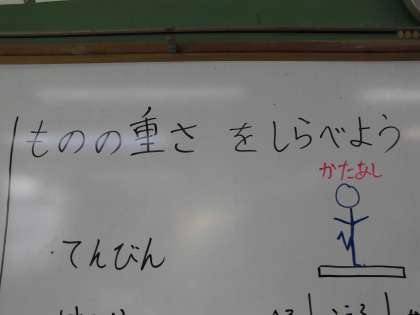 ものの重さ をしらべよう
かたあし
・てんびん